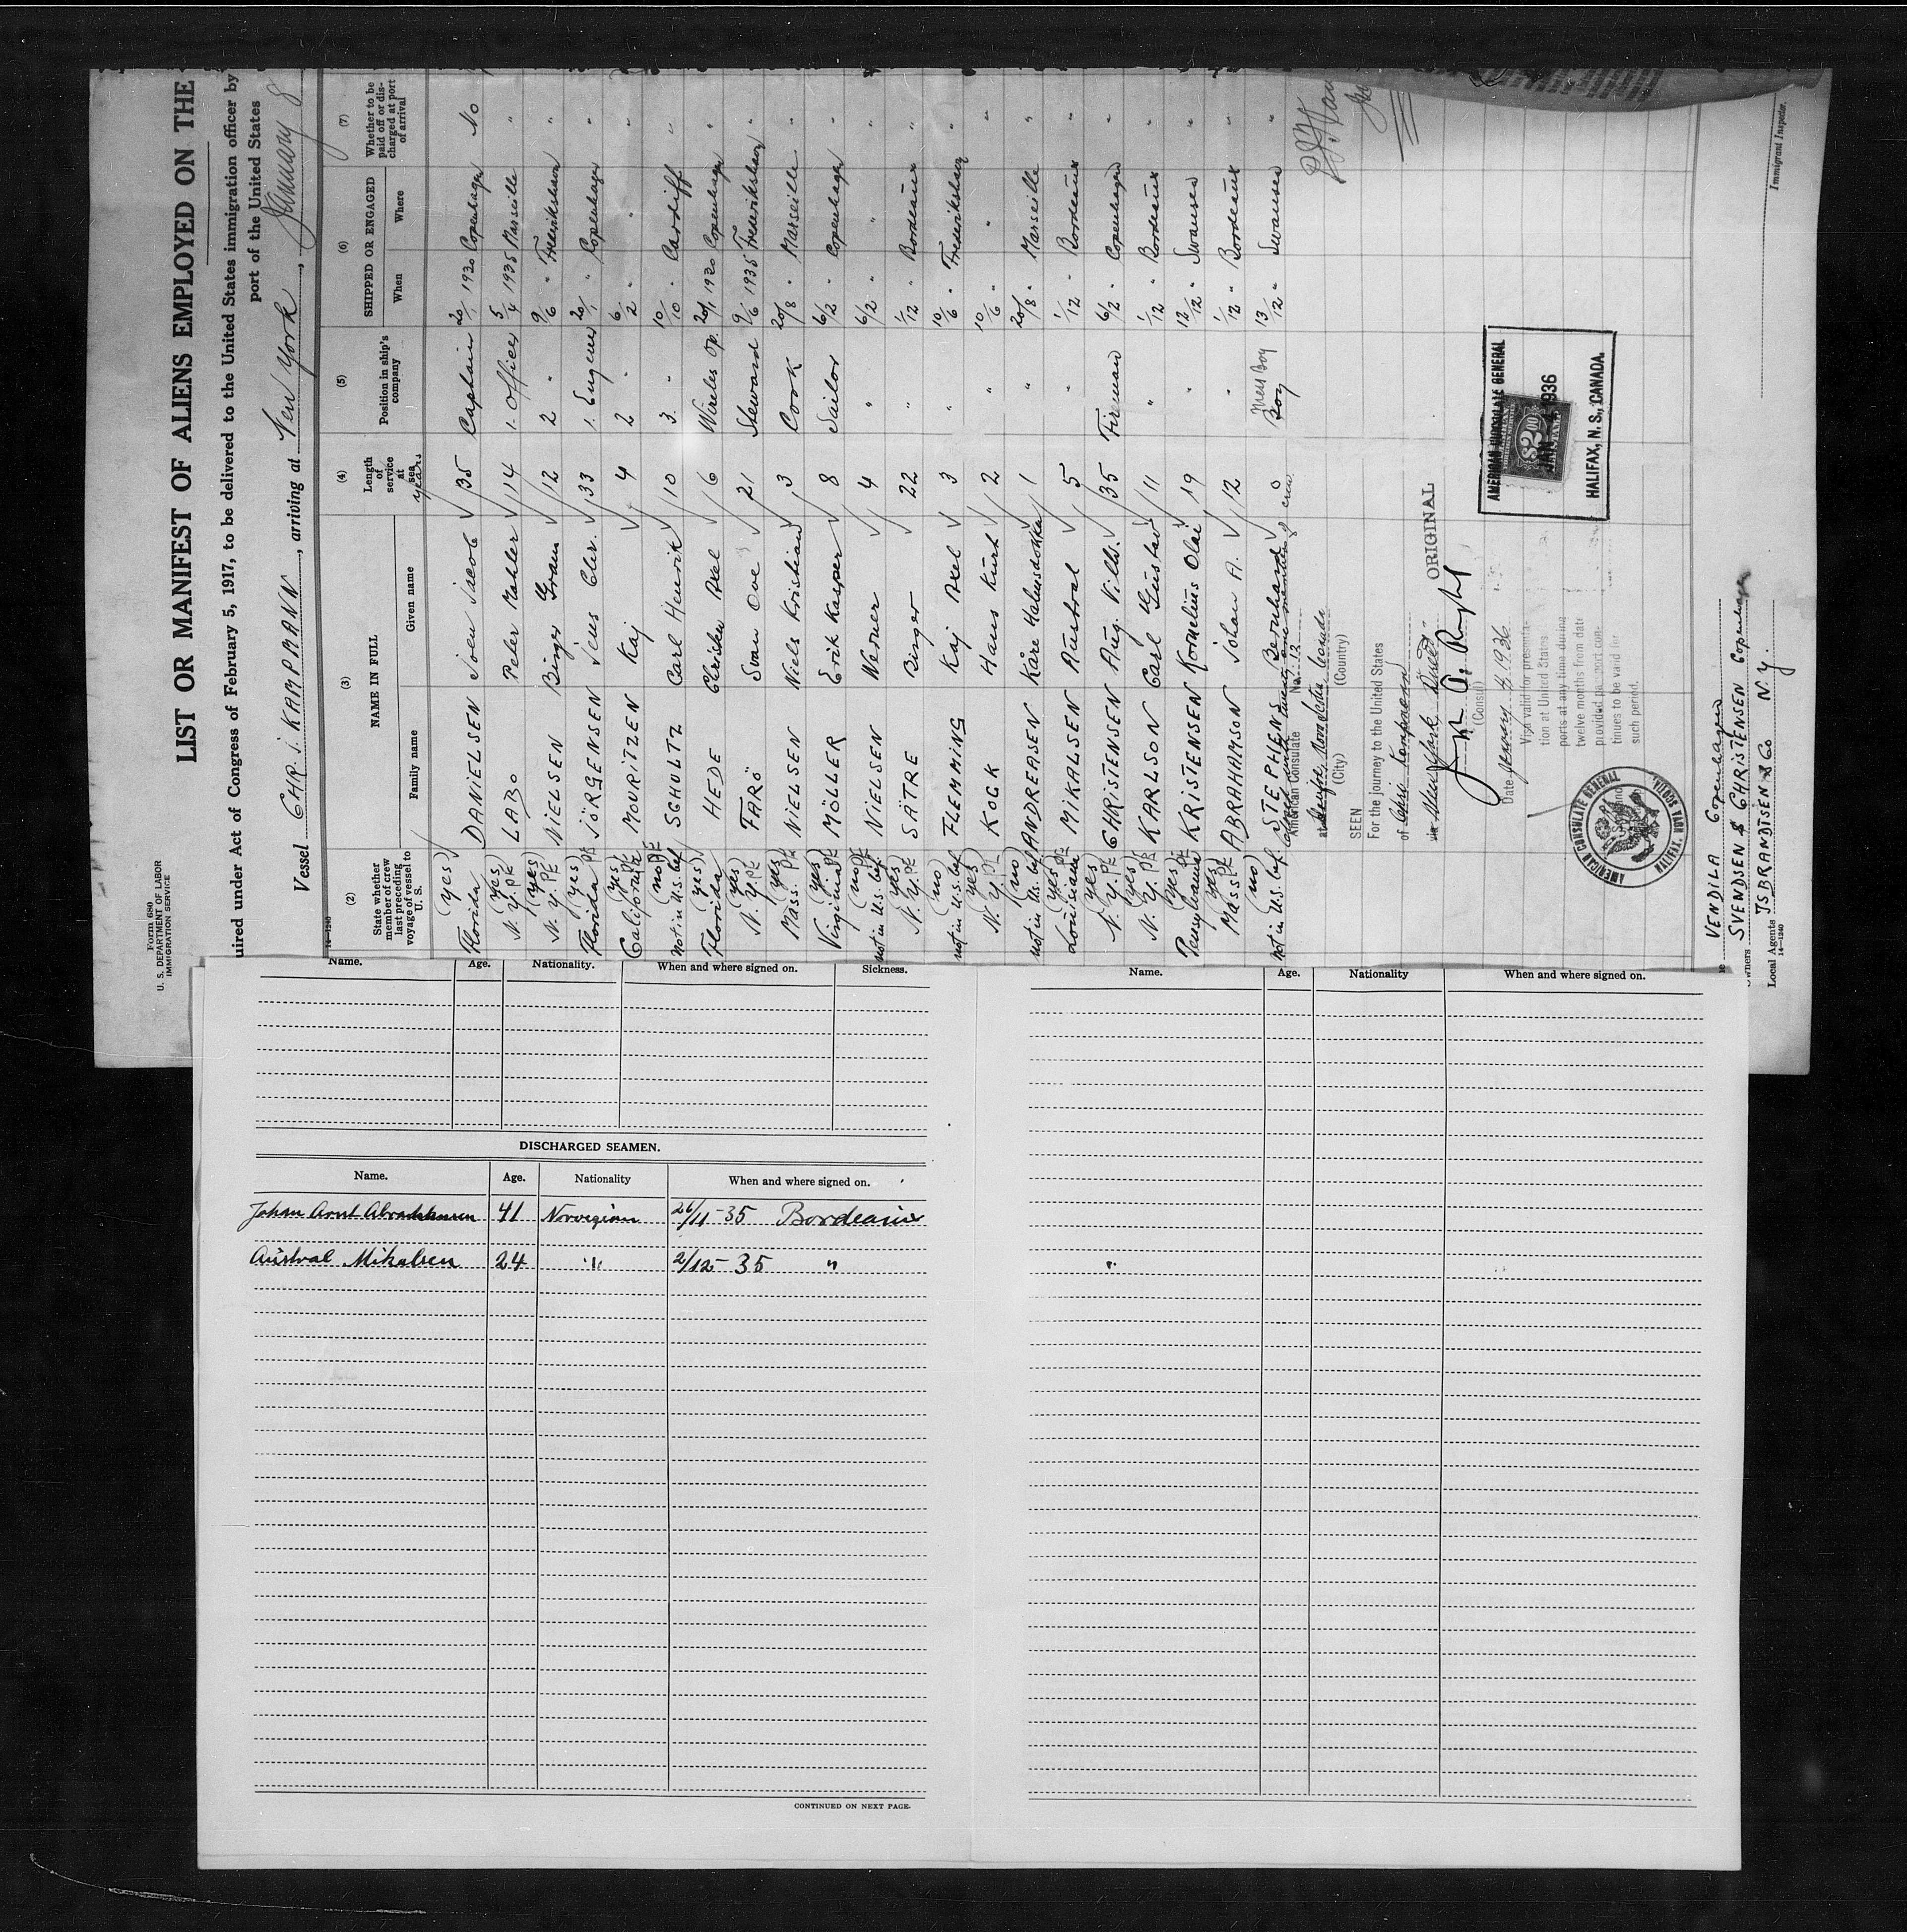 Form 680
U. S. DEPARTMENT OF LABOR
IMMIGRATION SERVICE
LIST OR MANIFEST OF ALIENS EMPLOYED ON THE
uired under Act of Congress of February 5, 1917, to be delivered to the United States immigration officer by
port of the United States
Vessel CHR. i. KAMPMANN, arriving at New York, January 8
14-1240
(2) (3) (4) (5) (6) (7)
State whether member of crew last preceding voyage of vessel to U. S.
NAME IN FULL
Family name Given name
Length of service at sea years
Position in ship's company
SHIPPED OR ENGAGED
When Where
Whether to be paid off or discharged at port of arrival
(yes) Florida DANIELSEN Soen Jacob 35 Captain 20/1 1930 Copenhagen No
(yes) N.Y. PE LABO Peter Mahler 14 1. Officer 5/4 1935 Marseille "
(yes) N.Y. PE NIELSEN Birger Gram 12 2 " 9/6 " Frederikshavn "
(yes) Florida PE JÖRGENSEN Jens Chr. 33 1. Engener 20/1 " Copenhagen "
(yes) California PE MOURITZEN Kaj 4 2 " 6/2 " " "
(no) PE Not in U.S. bef SCHULTZ Carl Henrik 10 3. " 10/10 " Cardiff "
(yes) Florida HEDE Christen Axel 6 Wireles Op. 20/1 1930 Copenhagen "
(yes) N.Y. PE FARÖ Svan Ove 21 Steward 9/6 1935 Frederikshavn "
(yes) Mass. PE NIELSEN Niels Kristian 3 Cook 20/8 " Marseille "
(yes) Virginia PE MÖLLER Erik Kasper 8 Sailor 6/2 " Copenhagen "
(no) PE not in U.S. bef. NIELSEN Werner 4 " 6/2 " " "
(yes) N.Y. PE SÄTRE Birger 22 " 1/12 " Bordeaux "
(no) not in U.S. bef FLEMMING Kaj Axel 3 " 10/6 " Frederikshavn "
(yes) N.Y. PE KOCK Hans Kurt 2 " 10/6 " " "
(no) not in U.S. bef ANDREASEN Kåre Halvusdokka 1 " 20/8 " Marseille "
(yes) PE Louisiana MIKALSEN Austral 5 " 1/12 " Bordeaux "
(yes) N.Y. PE CHRISTENSEN Aug. Vilh. 35 Fireman 6/2 " Copenhagen "
(yes) N.Y. PE KARLSON Carl Gustav 11 " 1/12 " Bordeaux "
(yes) Pensylvania PE KRISTENSEN Kornelius Olai 19 " 12/12 " Swansea "
(yes) Mass PE ABRAHAMSON Johan A. 12 " 1/12 " Bordeaux "
(no) not in U.S. bef STEPHENS Bernhard 0 Mess Boy Boy 13/12 " Swansea "
American Consulate No. 12
at Halifax, Nova Scotia Canada
(City) (Country)
SEEN
For the journey to the United States
of Chr. Kampmann
via New York Direct
(Consul)
Date January 4, 1936
Visa valid for presenta-
tion at United States
ports at any time during
twelve months from date
provided passport con-
tinues to be valid for
such period.
ORIGINAL
AMERICAN CONSULATE GENERAL
$2.00
JAN 4 1936
HALIFAX, N. S., CANADA.
AMERICAN CONSULATE GENERAL
HALIFAX, NOVA SCOTIA.
VENDILA Copenhagen
wners SVENDSEN & CHRISTENSEN Copenhagen
Local Agents ISBRANDTSEN & Co N.Y.
14-1240
Immigrant Inspector.
Name. Age. Nationality. When and where signed on. Sickness.
Name. Age. Nationality When and where signed on.
DISCHARGED SEAMEN.
Name. Age. Nationality When and where signed on.
Johan Arnt Abrahamsen 41 Norvegian 26/11-35 Bordeaux
Austral Mikalsen 24 " 2/12-35 "
"
CONTINUED ON NEXT PAGE.